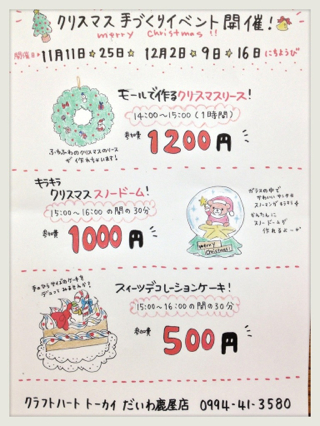 クリスマス 手づくりイベント 開催!
merry christmas!!
開催日 11月11日☆25日☆ 12月2日☆9日☆16日 にちようび
モールで作るクリスマスリース!
14:00〜15:00(1時間)
参加費 1200円
ふわふわのクリスマスのリースが
作れちゃいます!
キラキラ
クリスマス スノードーム!
15:00〜16:00の間の30分
参加費 1000円
ガラスの中で
スノードームが
作れるよ〜
merry
christmas!
スイーツデコレーションケーキ!
15:00〜16:00の間の30分
手のひらサイズのケーキを
参加費 500円
クラフトハート トーカイ だいわ鹿屋店 0994-41-3580